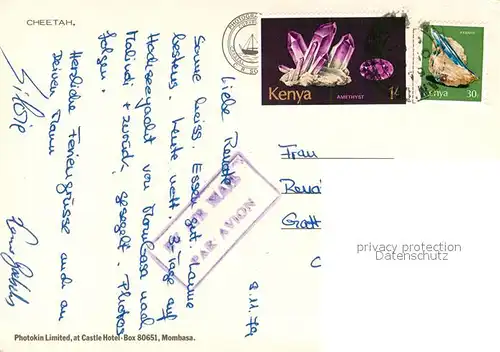 CHEETAH.
8.11.79
Liebe Renate
Sonne heiss. Essen gut. Laune
bestens. Heute nett. 3 Tage auf
Hochseeyacht von Mombasa nach
Malindi + zurück gesegelt. Photos
folgen.
Herzliche Feriengrüsse auch an
Deinen Mann
Silvie
BY AIR MAIL
PAR AVION
Kenya
AMETHYST
1/-
Kenya
30c
Frau
Rena
Gratt
privacy protection
Datenschutz
Photokin Limited, at Castle Hotel·Box 80651, Mombasa.